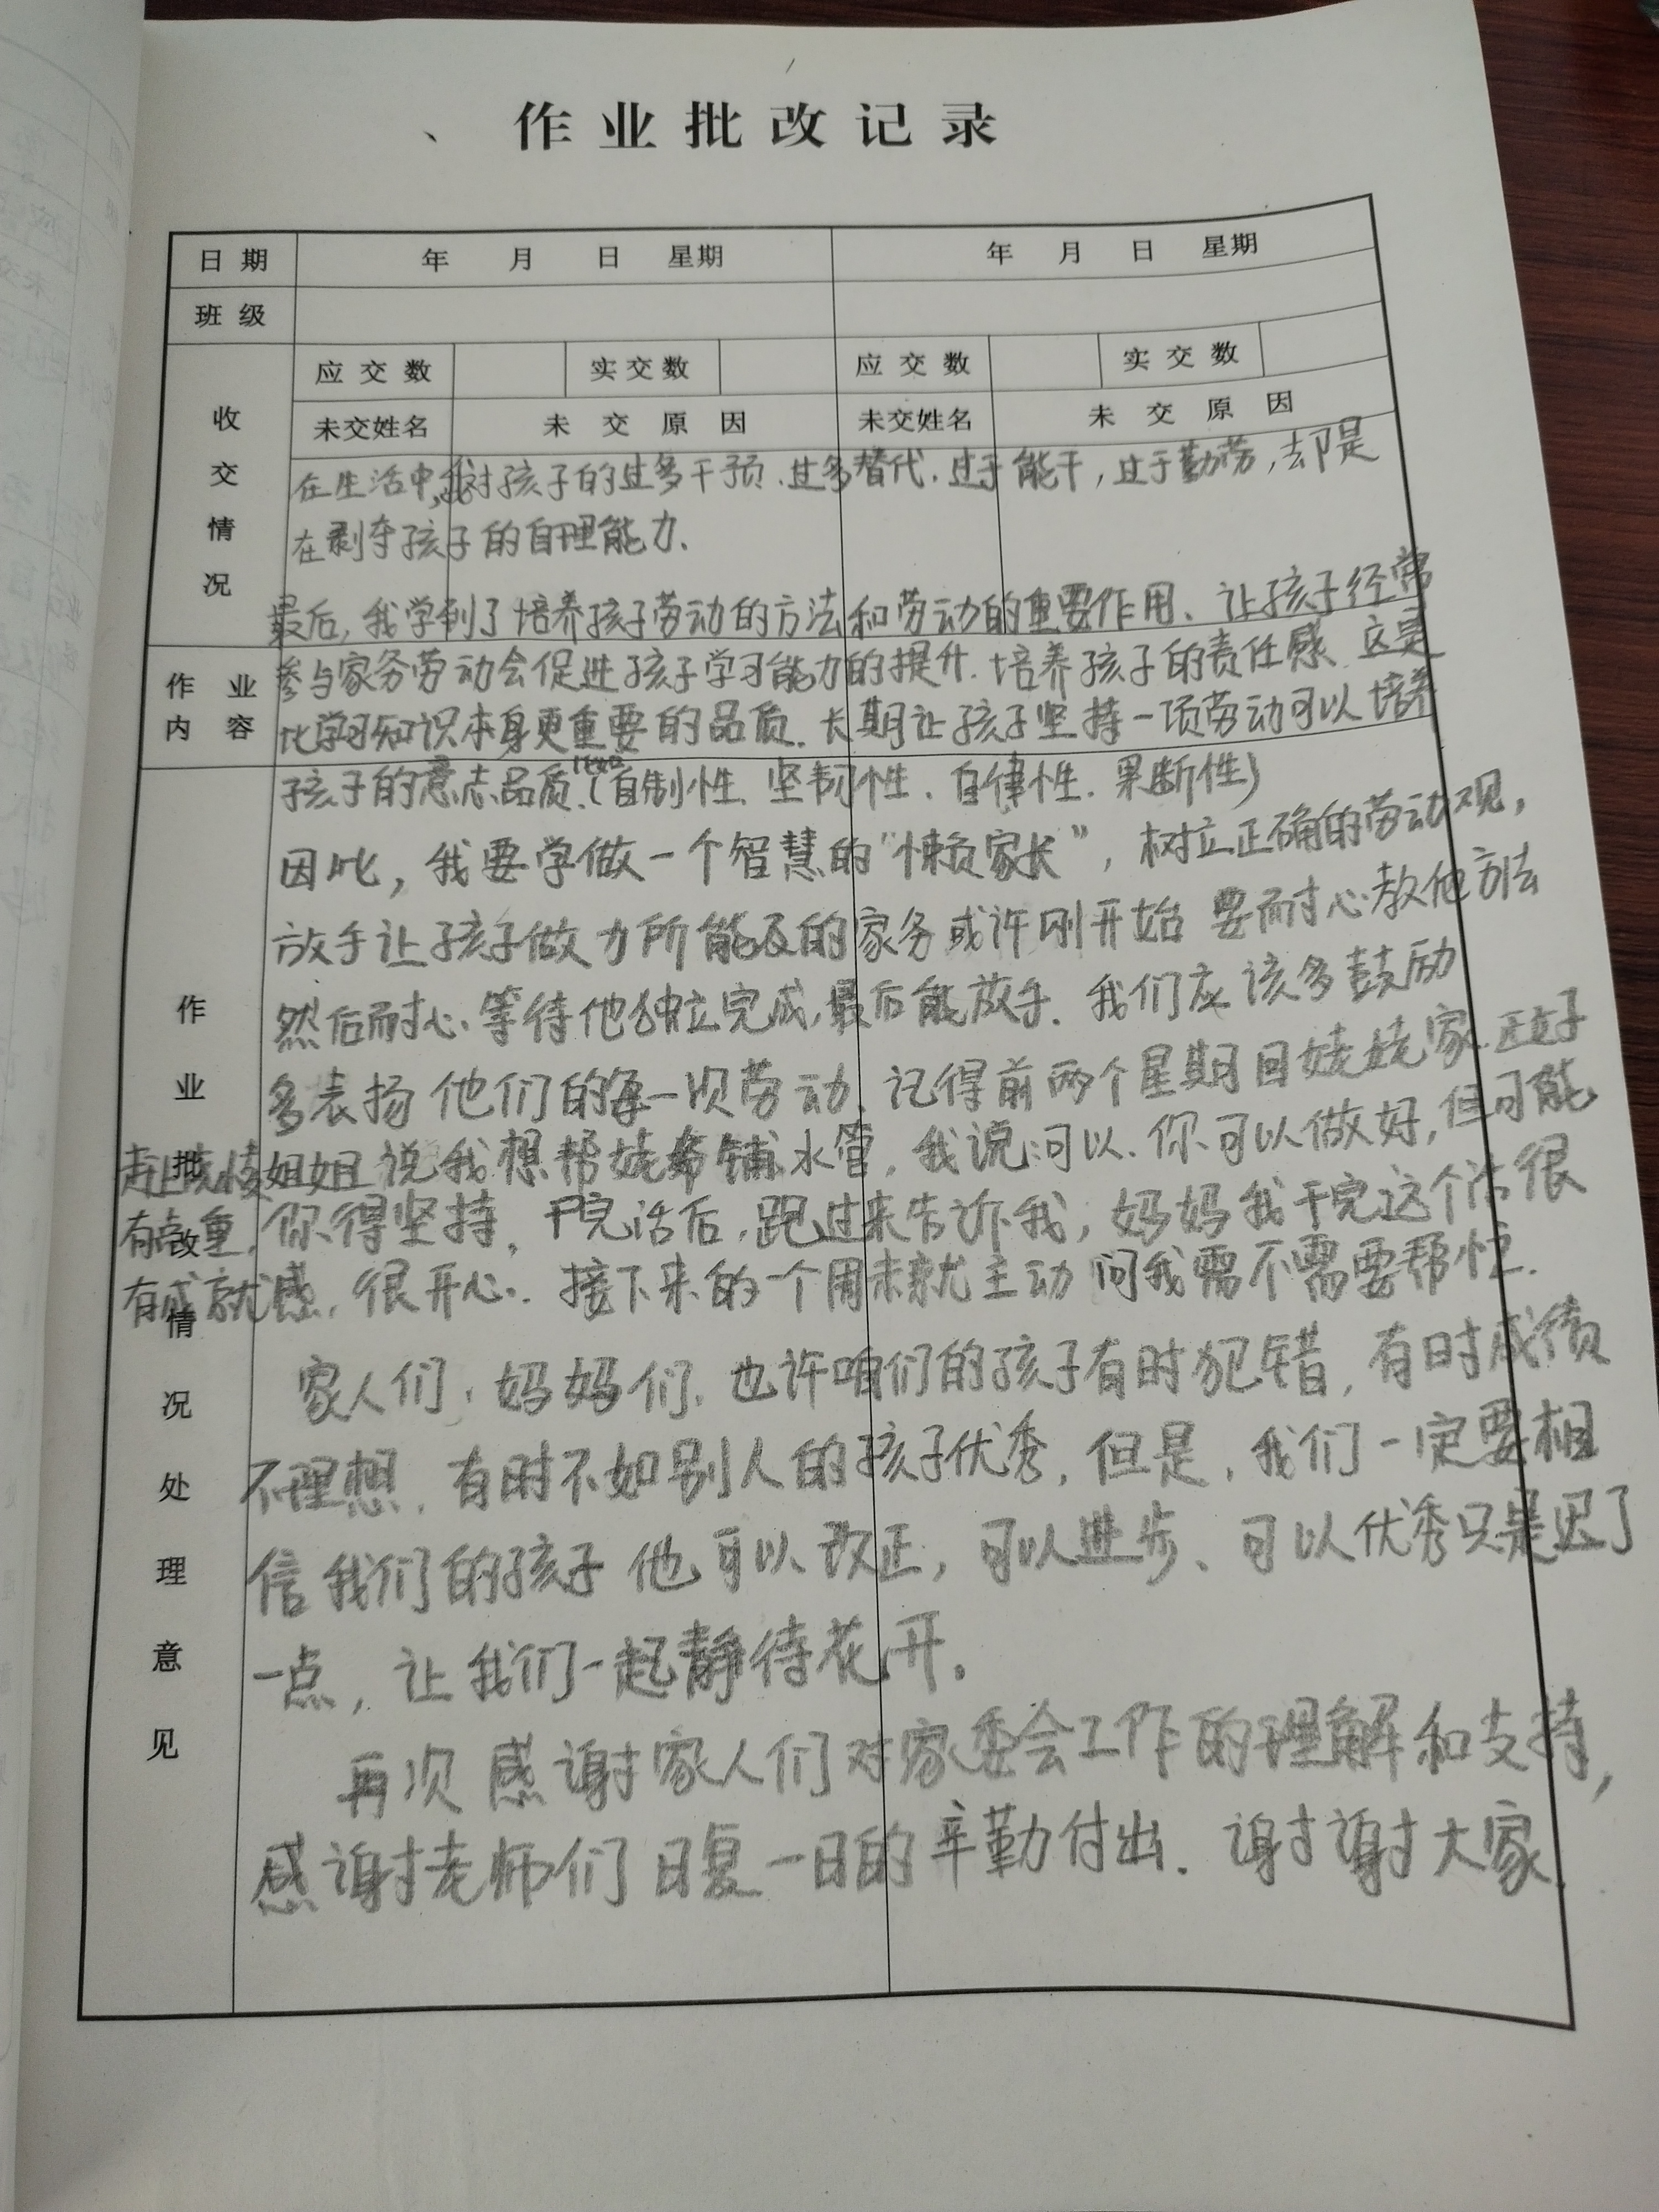 作业批改记录
日期 年 月 日 星期 年 月 日 星期
班级
收交情况 应交数 实交数 应交数 实交数
未交姓名 未交原因 未交姓名 未交原因
在生活中,我对孩子的过多干预、过多替代、过于能干,过于勤劳,却是
在剥夺孩子的自理能力.
最后,我学到了培养孩子劳动的方法和劳动的重要作用、让孩子经常
作业内容
参与家务劳动会促进孩子学习能力的提升.培养孩子的责任感 这是
比学习知识本身更重要的品质.长期让孩子坚持一项劳动可以培养
孩子的意志品质.(比如自制性、坚韧性、自律性、果断性)
作业批改情况处理意见
因此,我要学做一个智慧的“懒负家长”,树立正确的劳动观,
放手让孩子做力所能及的家务或许刚开始 要耐心教他方法
然后耐心等待他独立完成,最后能放手.我们应该多鼓励
多表扬他们的每一次劳动.记得前两个星期回姥姥家.正好
姐姐 说我想帮姥爷铺水管,我说:可以.你可以做好,但可能
有点重,你得坚持.干完活后,跑过来告诉我,妈妈我干完这个活很
有成就感,很开心.接下来的一个周末就主动问我需不需要帮忙.
家人们,妈妈们.也许咱们的孩子有时犯错,有时成绩
不理想,有时不如别人的孩子优秀,但是,我们一定要相
信我们的孩子 他可以改正,可以进步、可以优秀只是迟了
一点,让我们一起静待花开。
再次感谢家人们对家委会工作的理解和支持,
感谢老师们日复一日的辛勤付出.谢谢大家.